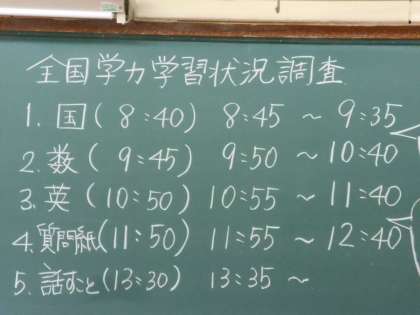 全国学力学習状況調査
1. 国(8:40) 8:45 ~ 9:35
2. 数(9:45) 9:50 ~ 10:40
3. 英(10:50) 10:55 ~ 11:40
4. 質問紙(11:50) 11:55 ~ 12:40
5. 話すこと(13:30) 13:35 ~